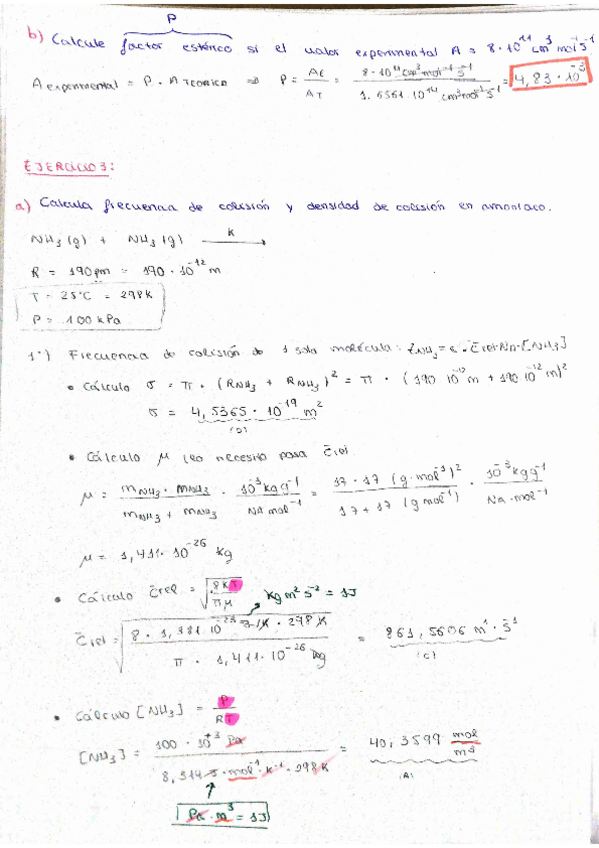 P
b) Calcule factor estérico si el valor experimental A = 8·10¹¹ cm³ mol⁻¹ s⁻¹
A experimental = P · A TEORICO ⇒ P = A_E / A_T = 8·10¹¹ cm³ mol⁻¹ s⁻¹ / 1.6561·10¹⁴ cm³ mol⁻¹ s⁻¹ = 4,83·10⁻³
EJERCICIO 3:
a) Calcula frecuencia de colisión y densidad de colisión en amoniaco.
NH₃ (g) + NH₃ (g) —k→
R = 190 pm = 190·10⁻¹² m
T = 25°C = 298 K
P = 100 kPa
1º) Frecuencia de colisión de 1 sola molécula: Z_NH₃ = σ · C̄rel · Na · [NH₃]
• Cálculo σ = π · (R_NH₃ + R_NH₃)² = π · (190·10⁻¹² m + 190·10⁻¹² m)²
σ = 4,5365·10⁻¹⁹ m²
(B)
• Cálculo μ (lo necesito para C̄rel)
μ = m_NH₃ · m_NH₃ / m_NH₃ + m_NH₃ · 10⁻³ kg g⁻¹ / NA mol⁻¹ = 17 · 17 (g·mol⁻¹)² / 17 + 17 (g mol⁻¹) · 10⁻³ kg g⁻¹ / Na·mol⁻¹
μ = 1,411·10⁻²⁶ kg
• Cálculo C̄rel = √(8KT / πμ) kg m² s⁻² = 1J
C̄rel = √(8 · 1,381·10⁻²³ J·K⁻¹ · 298 K / π · 1,411·10⁻²⁶ kg) = 861,5606 m¹·s⁻¹
(C)
• Cálculo [NH₃] = P / RT
[NH₃] = 100·10⁺³ Pa / 8,314 J·mol⁻¹·K⁻¹·298K = 40,3599 mol / m³
(A)
Pa · m³ = 1J